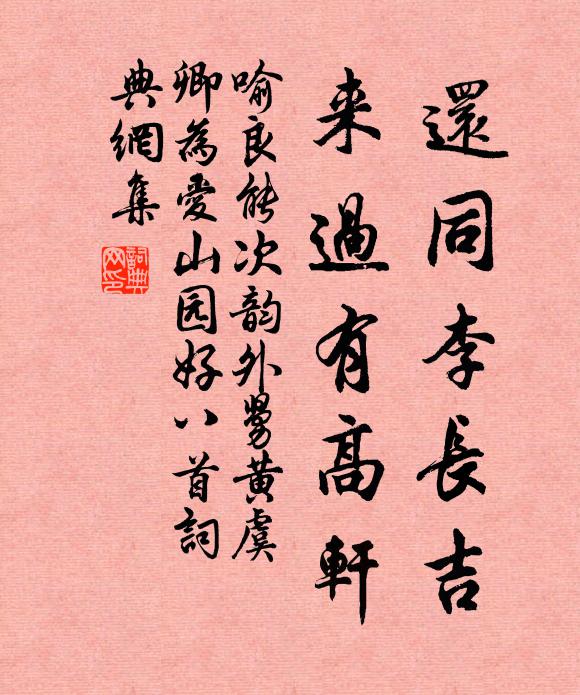 還同李長吉
来過有高軒
喻良能次韵外舅黄虞
卿為愛山园好八首詞
典網集
詞典網印